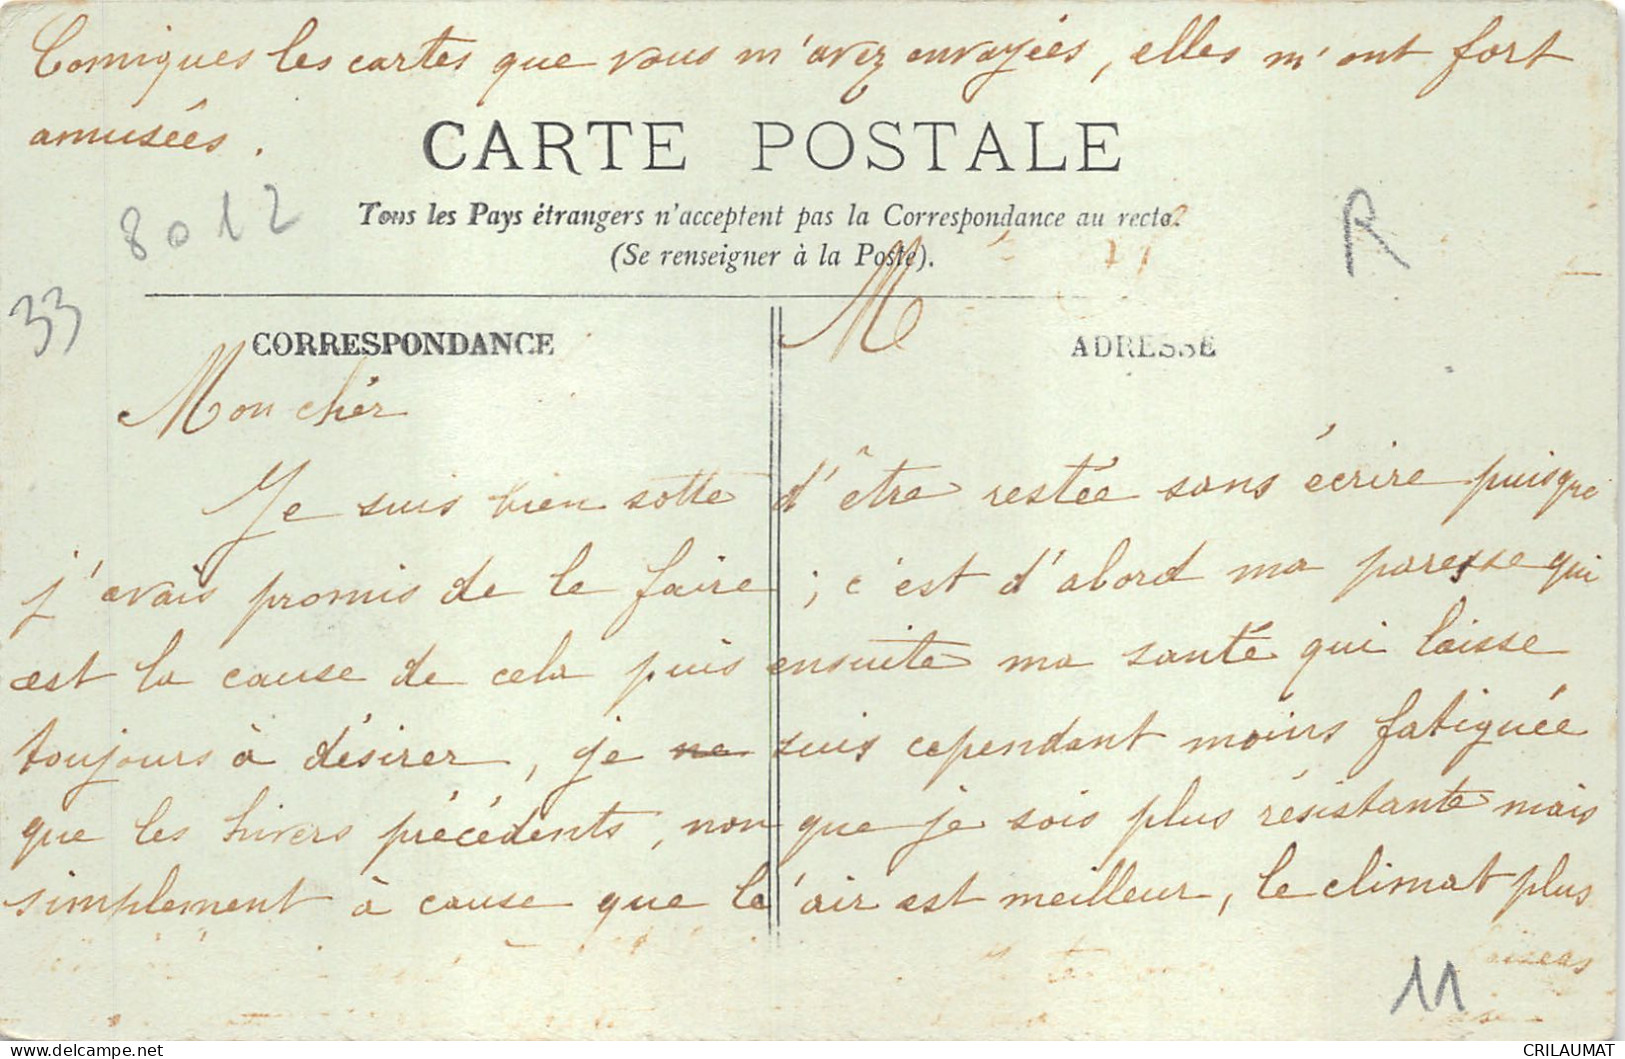 Comiques les cartes que vous m'avez envoyées, elles m'ont fort
amusées.
CARTE POSTALE
8012
R
Tous les Pays étrangers n'acceptent pas la Correspondance au recto.
(Se renseigner à la Poste).
33
M
CORRESPONDANCE
ADRESSE
Mon chér
Je suis bien sotte d'être restée sans écrire puisque
j'avais promis de le faire ; c'est d'abord ma paresse qui
est la cause de cela puis ensuite ma santé qui laisse
toujours à désirer, je ne suis cependant moins fatiguée
que les hivers précédents, non que je sois plus résistante mais
simplement à cause que le 'air est meilleur, le climat plus
11
CRILAUMAT